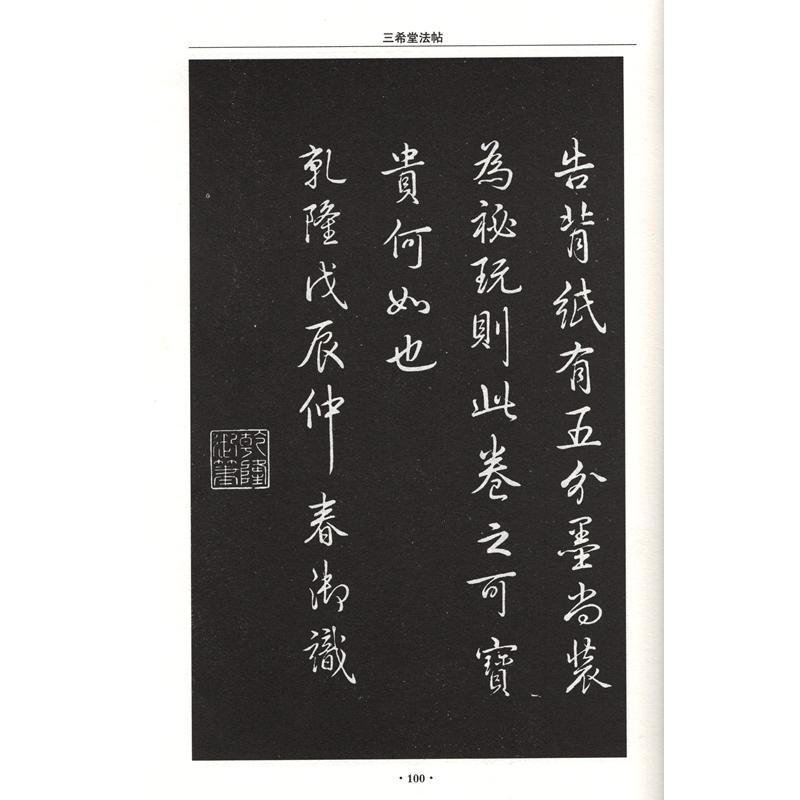 三希堂法帖
告背紙有五分墨尚裝
為祕玩則此卷之可寶
貴何如也
乾隆戊辰仲春御識
乾隆
御筆
·100·